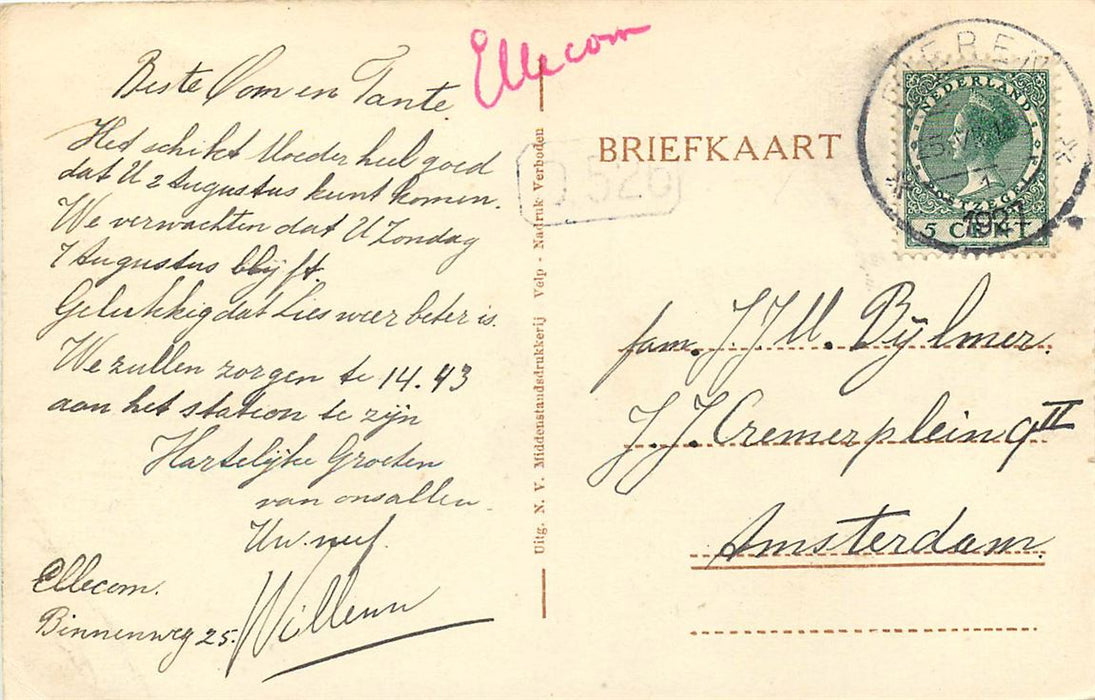 Ellecom
Beste Oom en Tante.
Het schikt Moeder heel goed
dat U 2 Augustus kunt komen.
We verwachten dat U Zondag
7 Augustus blijft.
Gelukkig dat Lies weer beter is.
We zullen zorgen te 14.43
aan het station te zijn
Hartelijke Groeten
van ons allen.
Uw neef.
Willem
Ellecom.
Binnenweg 25.
Uitg. N. V. Middenstandsdrukkerij Velp - Nadruk Verboden
BRIEFKAART
526
DIEREN
NEDERLAND
POSTZEGEL
5 CENT
1927
fam. J. J. M. Bijlmer.
J. J. Cremerplein 9 II
Amsterdam.